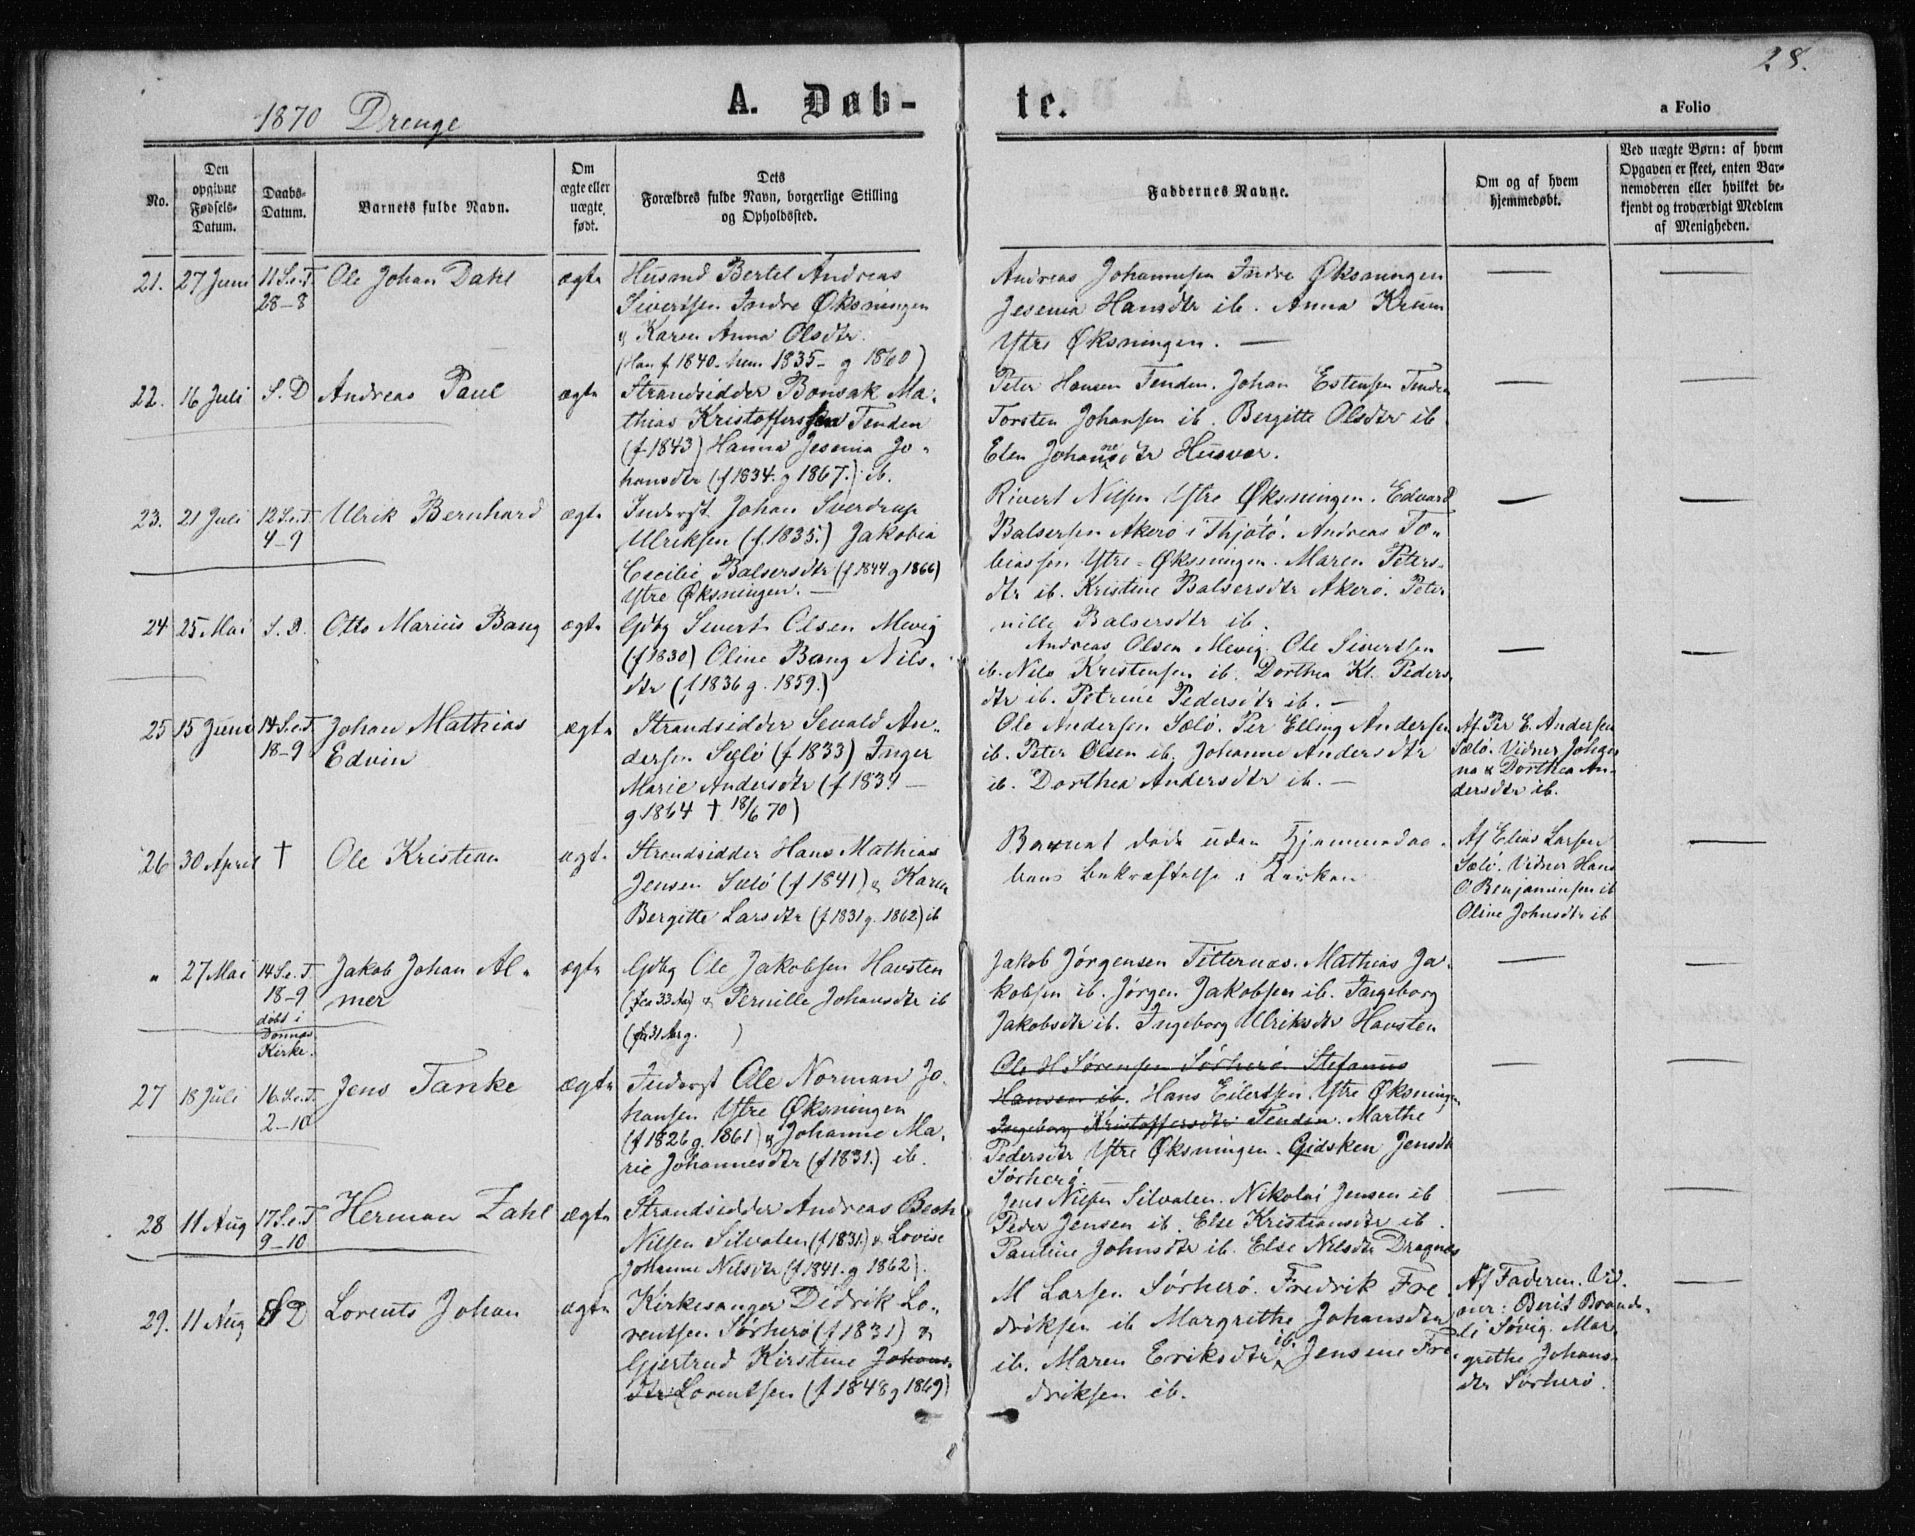 28.
1870 Drenge
A. Døb-
te.
a Folio
No.
Den opgivne Fødsels-Datum.
Daabs-Datum.
Barnets fulde Navn.
Om ægte eller uægte født.
Dets Forældres fulde Navn, borgerlige Stilling og Opholdssted.
Faddernes Navne.
Om og af hvem hjemmedøbt.
Ved uægte Børn: af hvem Opgaven er skeet, enten Barnemoderen eller hvilket bekjendt og troværdigt Medlem af Menigheden.
21. 27 Juni 11 S.e.T. 28-8 Ole Johan Dahl ægte
Husmd Bertel Andreas
Sivertsen Indre Øksningen
& Karen Anna Olsdtr.
(Han f 1840. hun 1835- g 1860)
Andreas Johannesen Indre Øksningen
Jesenia Hansdtr ib. Anna Krum
Ytre Øksningen. —
22. 16 Juli S.D Andreas Paul ægte
Strandsidder Bonsak Ma-
thias Kristoffersen Tenden
(f 1843) Hanna Jesenia Jo-
hansdtr (f 1834. g 1867.) ib.
Peter Hansen Tenden. Johan Estensen Tenden
Torsten Johansen ib. Bergitte Olsdtr ib.
Elen Johannesdtr Husvær.
23. 21 Juli 12 S.e.T 4-9 Ulrik Bernhard ægte
Inderst Johan Sverdrup
Ulriksen (f. 1835.) Jakobia
Cecilie Balsersdtr (f 1844 g 1866)
Ytre Øksningen. —
Sivert Nilsen Ytre Øksningen. Edvard
Balsersen Akerø i Thjøtø. Andreas To-
biassen Ytre-Øksningen. Maren Peters-
dtr ib. Kristine Balsersdtr Akerø. Peter
nille Balsersdtr ib.
24 25 Mai S.D. Otto Marius Bang ægte
Gdbg Sivert Olsen Mevig
(f 1830) Oline Bang Nils-
dtr (f 1836 g. 1859.)
Andreas Olsen Mevig. Ole Sivertsen
ib. Nils Kristensen ib. Dorthea Kl. Peders
dtr ib. Petrine Pedersdtr ib. —
25 15 Juni 14 S.e.T. 18-9 Johan Mathias Edvin ægte
Strandsidder Sevald An-
dersen Sælø (f 1833) Inger
Marie Andersdtr (f 183! —
g 1864 † 18/6 70)
Ole Andersen Sælø. Per Elling Andersen
ib. Peter Olsen ib. Johanne Andersdtr
ib. Dorthea Andersdtr ib. —
Af Per E. Andersen
Sælø. Vidner Johan
na & Dorthea An-
dersdtr ib.
26 30 April † Ole Kristian ægte
Strandsidder Hans Mathias
Jensen Sælø (f 1841) & Karen
Bergitte Larsdtr (f 1831 g. 1862) ib
Barnet døde uden Hjemmedaa-
bens bekræftelse i Kirken
Af Elias Larsen
Sælø. Vidner Hans
O. Benjaminsen ib
Oline Johnsdtr ib
" 27 Mai 14 S.e.T. 18-9 døbt i Dønnæs Kirke. Jakob Johan Al-
mer ægte
Gdbg Ole Jakobsen Havsten
(f ca 33 Aar) & Pernille Johansdtr ib
(f ca 31 Aar g. )
Jakob Jørgensen Titternæs. Mathias Ja-
kobsen ib. Jørgen Jakobsen ib. Ingeborg
Jakobsdtr ib. Ingeborg Ulriksdtr Havsten
27 18 Juli 16. S.e.T. 2-10 Jens Tanke ægte
Inderst Ole Norman Jo-
hansen Ytre Øksningen
(f 1826 g. 1861) & Johanne Ma-
rie Johannesdtr (f 1831.) ib.
Ole H Sørensen Sørherø Stefanus
Hansen ib. Hans Eilertsen Ytre Øksningen
Ingeborg Kristoffersdtr Tenden. Marthe
Pedersdtr Ytre Øksningen. Gidsken Jensdtr
Sørherø. —
28 11 Aug 17 S.e.T 9-10 Herman Zahl ægte
Strandsidder Andreas Bech
Nilsen Silvalen (f 1831) & Lovise
Johanne Nilsdtr (f 1841. g 1862).
Jens Nilsen Silvalen. Nikolai Jensen ib
Peder Jensen ib. Else Kristiansdtr ib.
Pauline Johnsdtr ib. Else Nilsdtr Dragnes
29. 11 Aug S D Lorents Johan ægte
Kirkesanger Didrik Lo-
rentsen Sørherø (f 1831) &
Gjertrud Kirstine Johans-
dtr Lorentsen (f 1848 g 1869)
M Larsen Sørherø. Fredrik Fre
driksen ib Margrethe Johansdtr
ib. Maren Eriksdtr ib. Jensine Fre-
driksen ib.
Af Faderen. Vid-
ner: Berit Brands-
li Søvig. Mar-
grethe Johans-
dtr Sørherø.